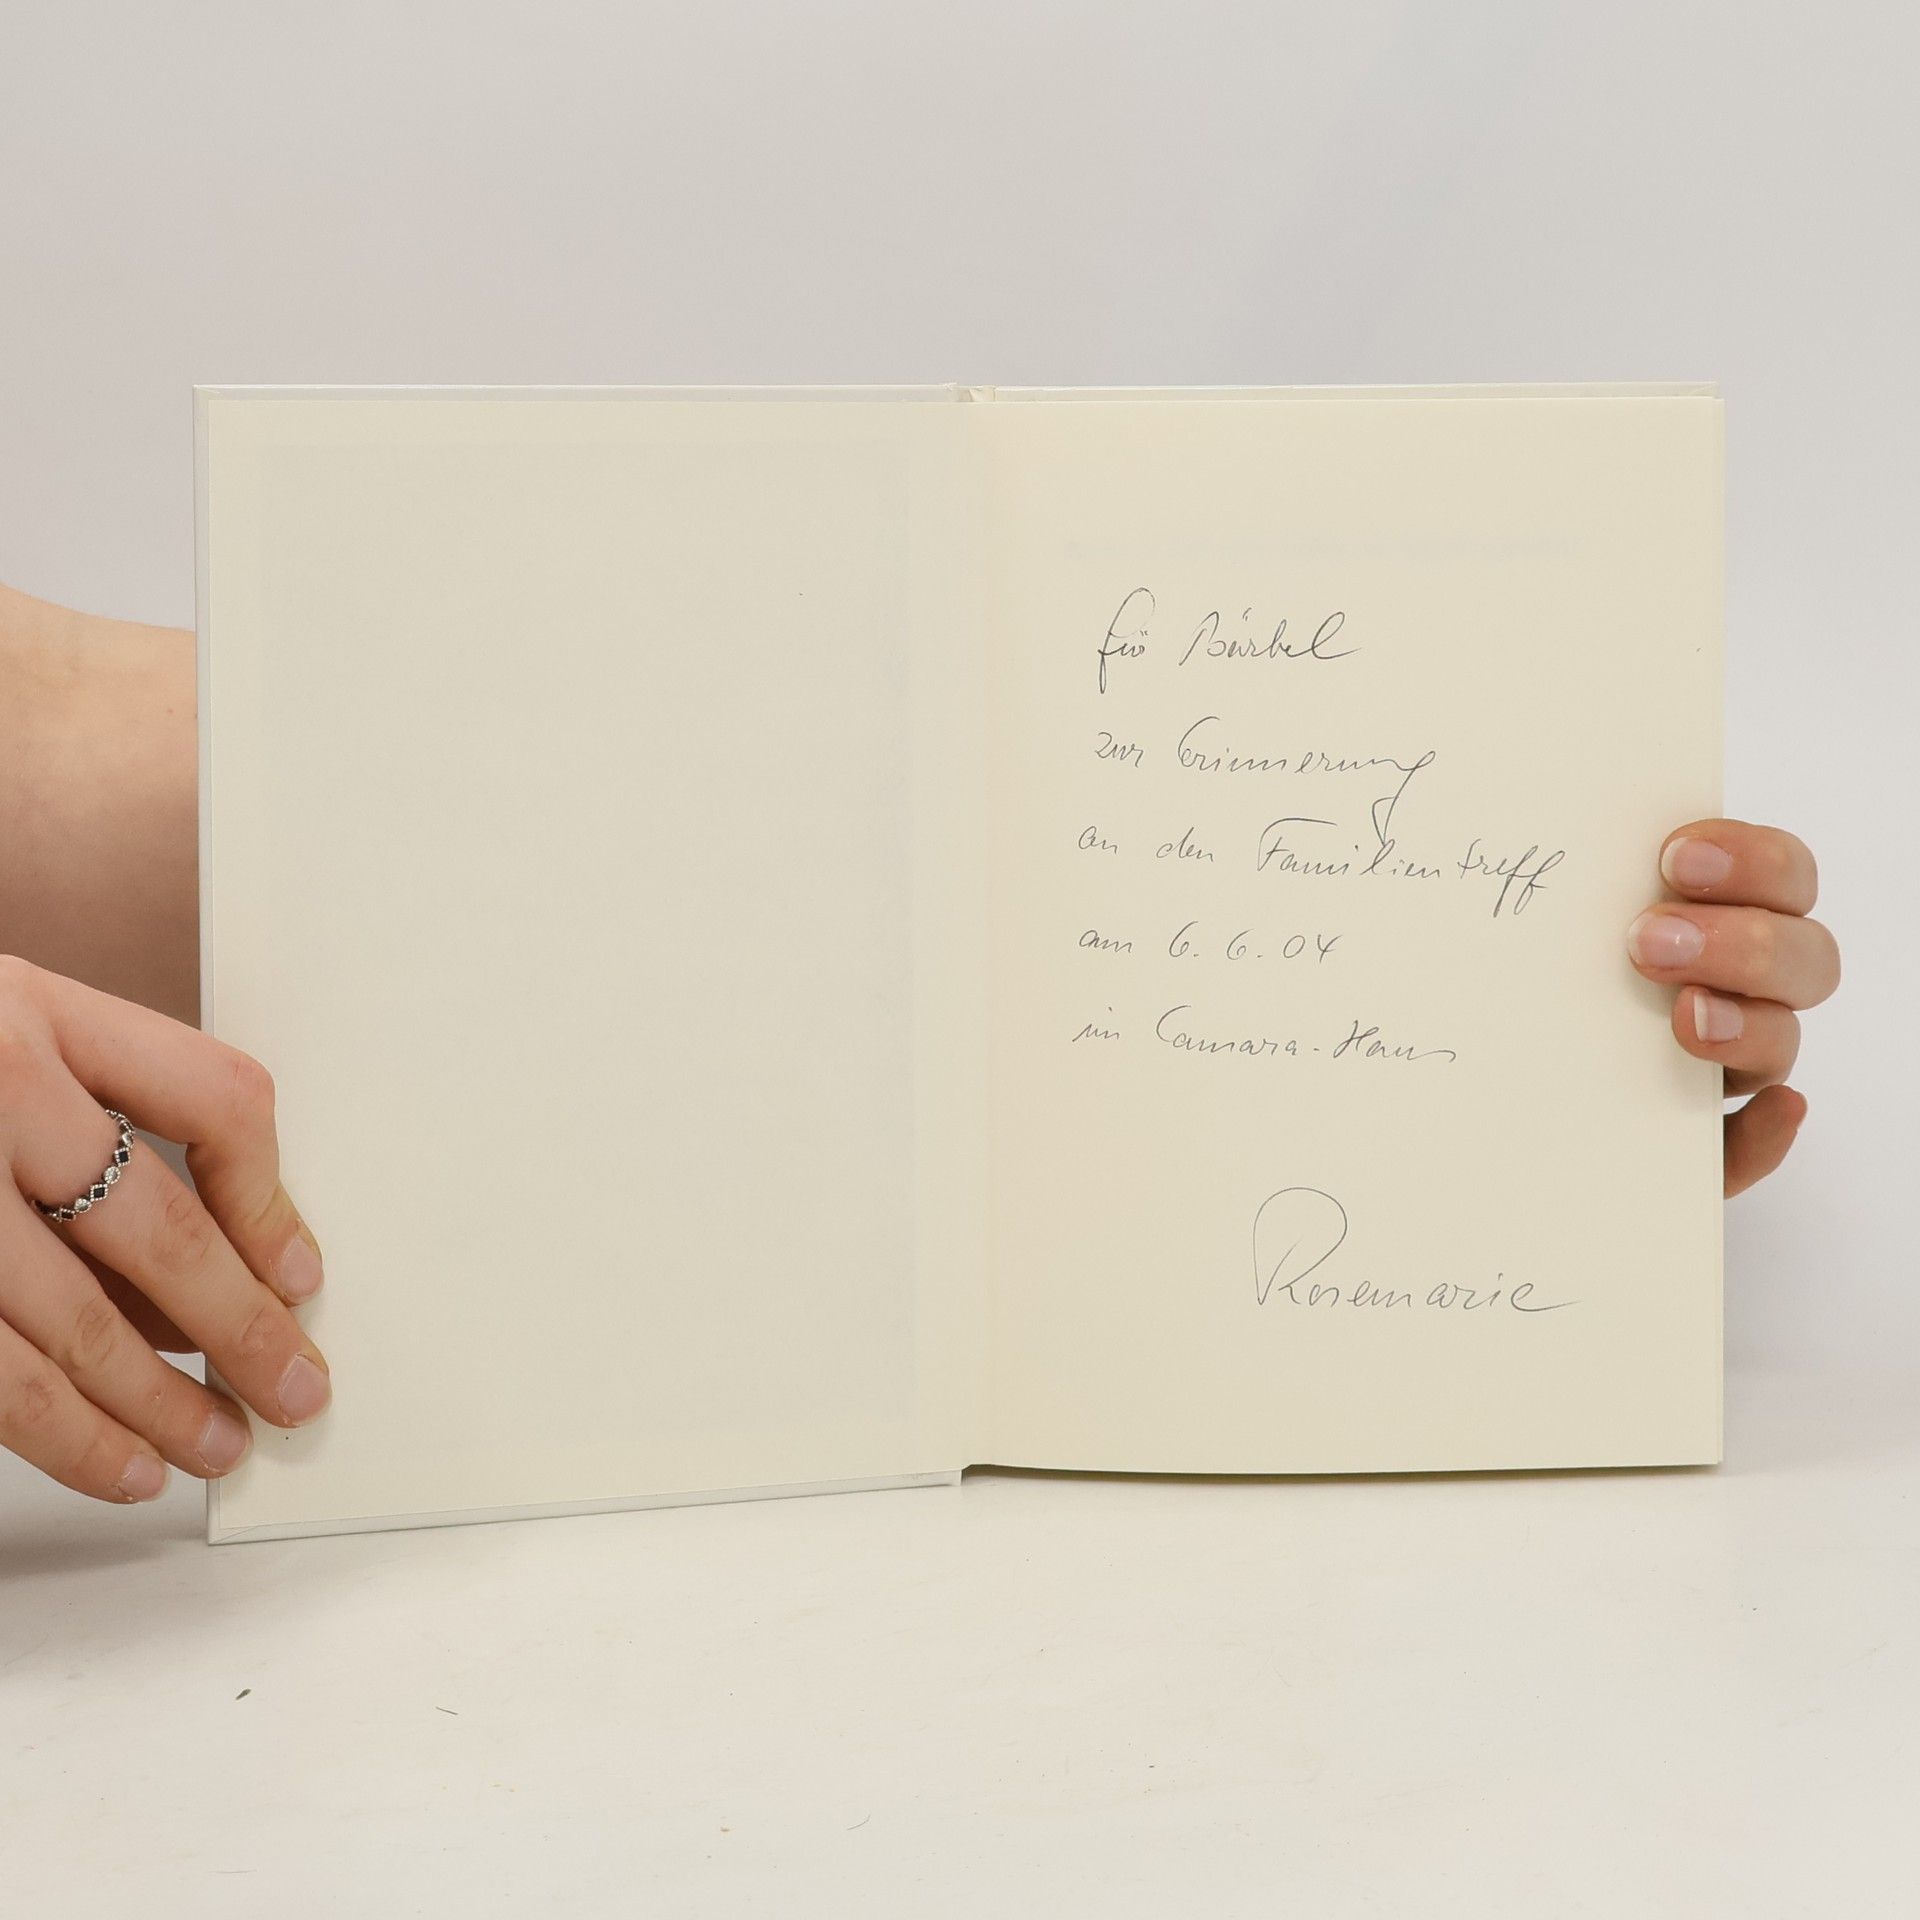 für Bärbel
zur Erinnerung
an den Familientreff
am 6. 6. 04
im Camara-Haus
Rosemarie